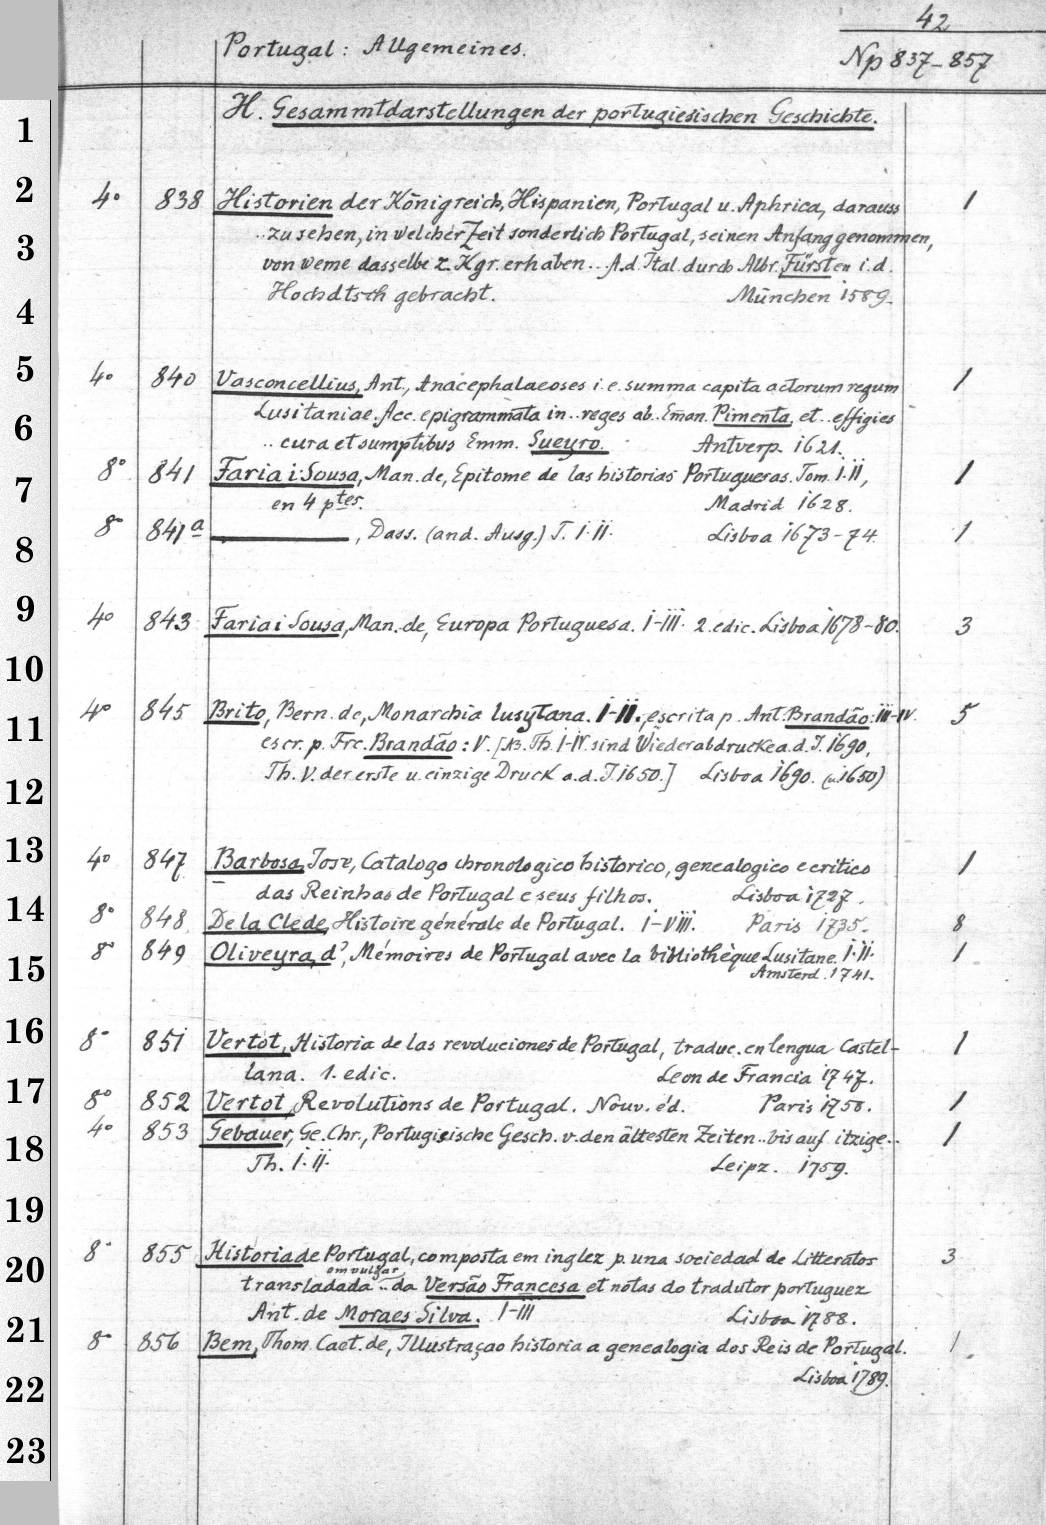 42
Portugal: Allgemeines.
Np 837-857
1
H. Gesammtdarstellungen der portugiesischen Geschichte.
2
4° 838 Historien der Königreich, Hispanien, Portugal u. Aphrica, darauss 1
3
..zu sehen, in welcher Zeit sonderlich Portugal, seinen Anfang genommen,
von weme dasselbe z. Kgr. erhaben.. A.d. Ital. durch Albr. Fürsten i.d.
4
Hochdtsch gebracht. München 1589.
5
4° 840 Vasconcellius, Ant., Anacephalaeoses i.e. summa capita actorum regum 1
6
Lusitaniae. Acc. epigrammata in.. reges ab.. Eman. Pimenta, et.. effigies
.. cura et sumptibus Emm. Sueyro. Antverp. 1621.
7
8° 841 Faria i Sousa, Man. de, Epitome de las historias Portuguesas. Tom. I.II, 1
en 4 ptes. Madrid 1628.
8
8° 841a ———, Dass. (and. Ausg.) T. I.II. Lisboa 1673-74. 1
9
4° 843 Faria i Sousa, Man. de, Europa Portuguesa. I-III. 2. edic. Lisboa 1678-80. 3
10
11
4° 845 Brito, Bern. de, Monarchia Lusytana. I-II., escrita p. Ant. Brandão: III-IV. 5
escr. p. Frc. Brandão: V. [NB. Th. I-IV. sind Wiederabdrucke a.d.J. 1690,
12
Th. V. der erste u. einzige Druck a.d.J. 1650.] Lisboa 1690. (u. 1650)
13
4° 847 Barbosa, Jose, Catalogo chronologico historico, genealogico e critico 1
das Reinhas de Portugal e seus filhos. Lisboa 1727.
14
8° 848 De la Clede, Histoire générale de Portugal. I-VIII. Paris 1735. 8
15
8° 849 Oliveyra, d', Mémoires de Portugal avec la bibliothèque Lusitane. I.II. 1
Amsterd. 1741.
16
8° 851 Vertot, Historia de las revoluciones de Portugal, traduc. en lengua Castel- 1
lana. 1. edic. Leon de Francia 1747.
17
8° 852 Vertot, Revolutions de Portugal. Nouv. éd. Paris 1758. 1
18
4° 853 Gebauer, Ge. Chr., Portugisische Gesch. v. den ältesten Zeiten.. bis auf itzige.. 1
Th. I.II. Leipz. 1759.
19
20
8° 855 Historia de Portugal, composta em inglez p. una sociedad de Litteratos 3
transladada em vulgar.. da Versão Francesa et notas do tradutor portuguez
21
Ant. de Moraes Silva. I-III Lisboa 1788.
8° 856 Bem, Thom. Caet. de, Illustraçao historia a genealogia dos Reis de Portugal. 1
22
Lisboa 1789.
23